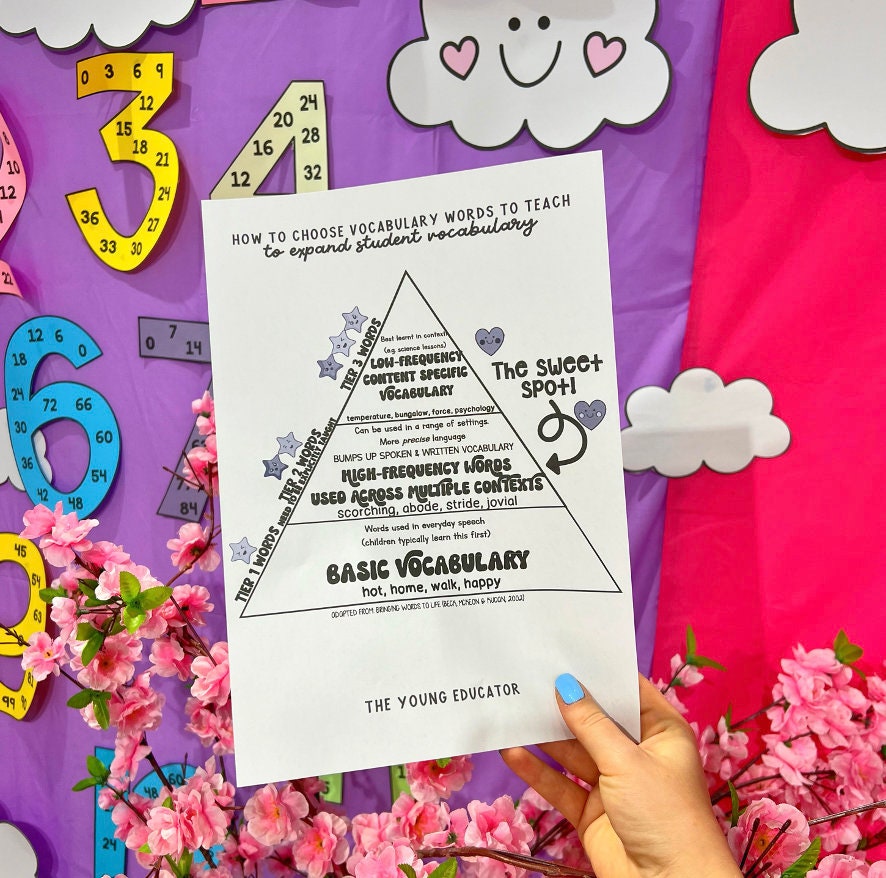 HOW TO CHOOSE VOCABULARY WORDS TO TEACH
to expand student vocabulary
TIER 3 WORDS
Best learnt in context
(e.g. science lessons)
LOW-FREQUENCY
CONTENT SPECIFIC
VOCABULARY
temperature, bungalow, force, psychology
The sweet
spot!
TIER 2 WORDS
NEED TO BE EXPLICITLY TAUGHT
Can be used in a range of settings.
More precise language
BUMPS UP SPOKEN & WRITTEN VOCABULARY
HIGH-FREQUENCY WORDS
USED ACROSS MULTIPLE CONTEXTS
scorching, abode, stride, jovial
TIER 1 WORDS
Words used in everyday speech
(children typically learn this first)
BASIC VOCABULARY
hot, home, walk, happy
ADOPTED FROM: BRINGING WORDS TO LIFE (BECK, MCKEON & KUCAN, 2002)
THE YOUNG EDUCATOR
0 3 6 9
12
15
18
21
24
27
30
33
36
24
20
28
16
12
32
10
12
22
12 6 0
18
24
72 66
30
60
36
54
42 48
0 7 14
84
45
54
63
99
48 60
24